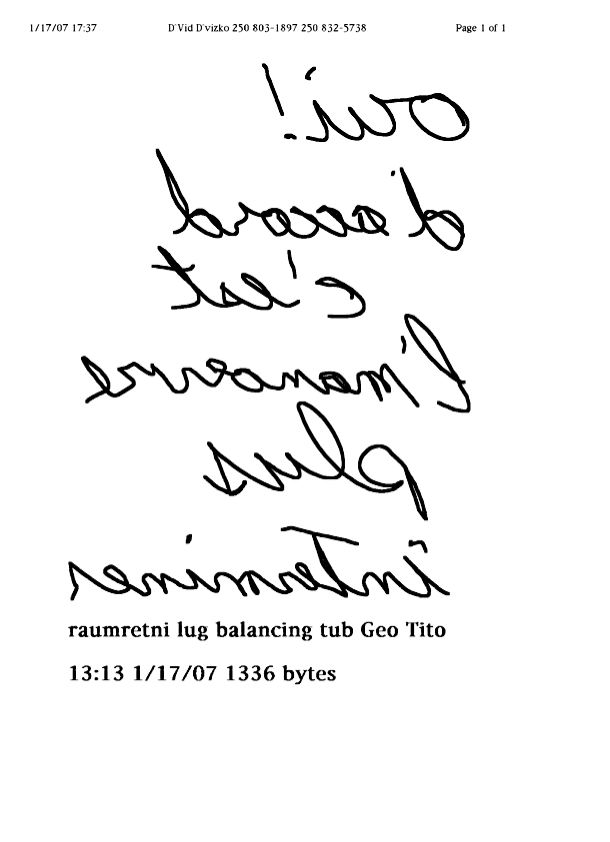 1/17/07 17:37 D'Vid D'vizko 250 803-1897 250 832-5738 Page 1 of 1
oui!
d'accord
c'est
l'manoevre
plus
intermines
raumretni lug balancing tub Geo Tito
13:13 1/17/07 1336 bytes